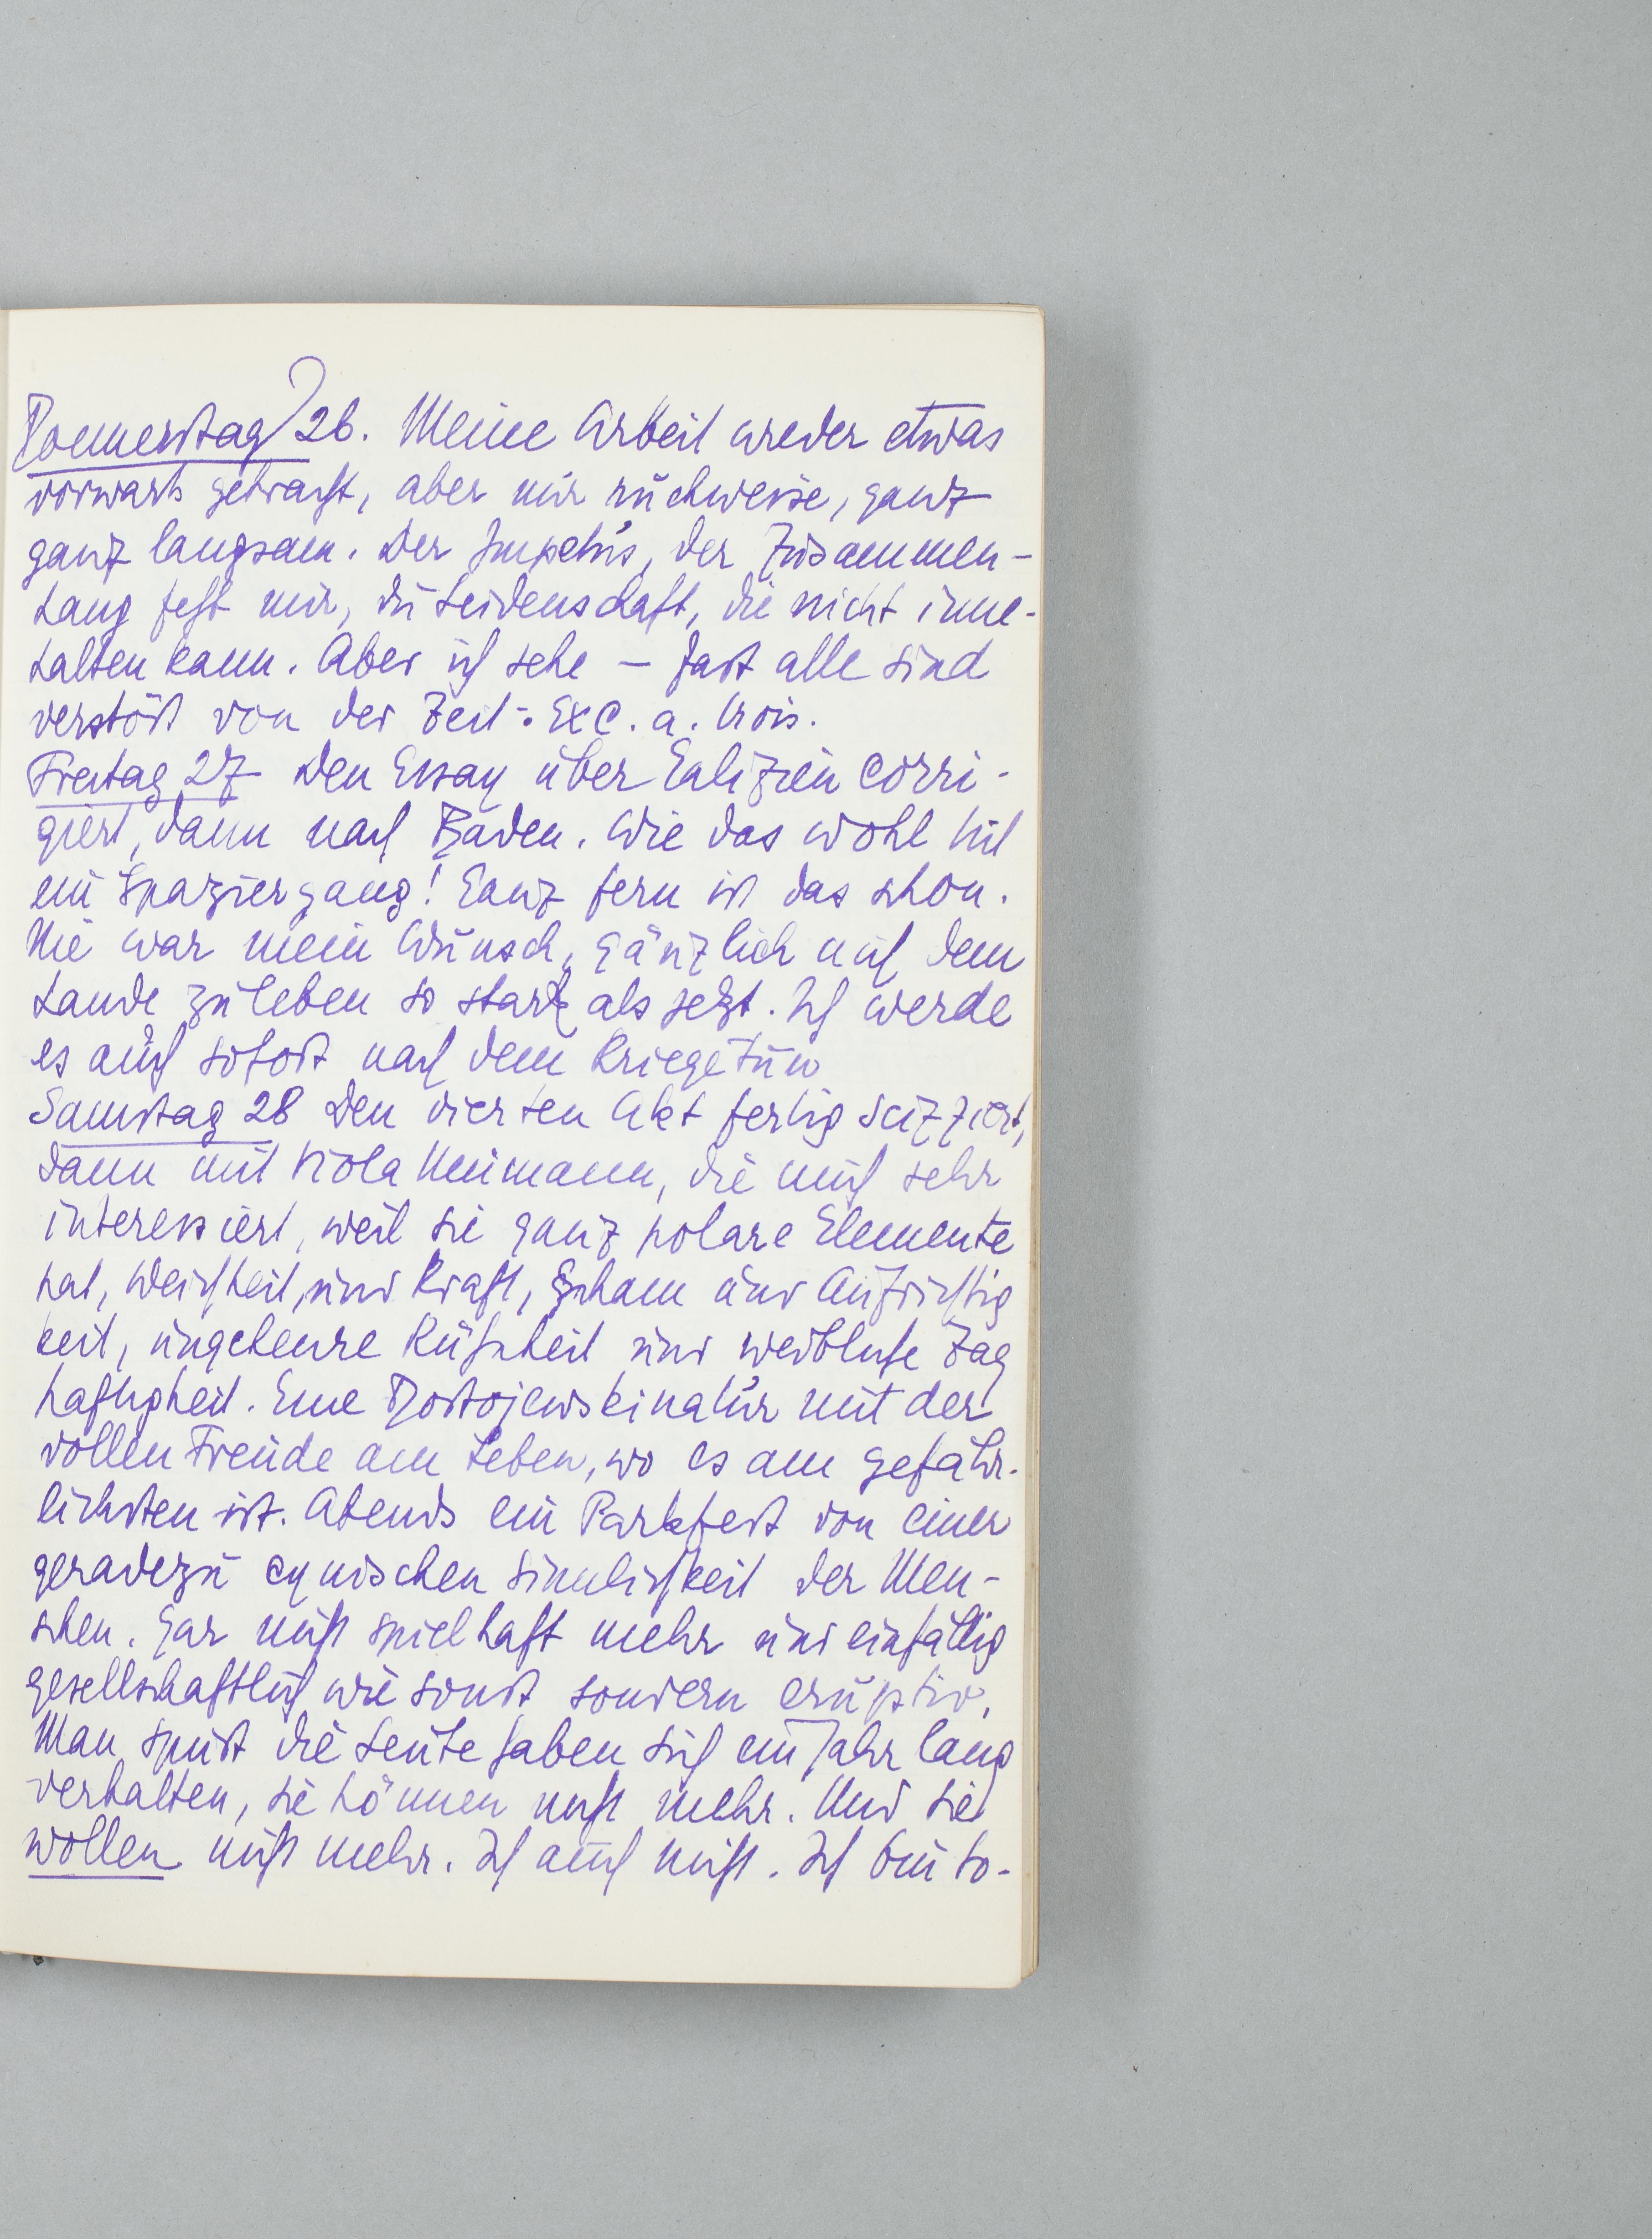 Donnerstag 26. Meine Arbeit wieder etwas
vorwarts gebracht, aber nur ruckweise, ganz
ganz langsam. Der Impetus, der Zusammen-
hang fehlt mir, die Leidenschaft, die nicht inne-
halten kann. Aber ich sehe – fast alle sind
verstört von der Zeit. Exc. a.
Freitag 27 Den Essay über Galizien corri-
giert, dann nach Baden. Wie das wohl tut
ein Spaziergang! Ganz fern ist das schon.
Nie war mein Wunsch, gänzlich auf dem
Lande zu leben so stark als jetzt. Ich werde
es auch sofort nach dem Kriege tun
Samstag 28 Den vierten Akt fertig scizziert,
dann mit Viola Neumann, die mich sehr
interessiert, weil sie ganz polare Elemente
hat, Weichheit und Kraft, Scham und Aufrichtig
keit, ungeheure Kühnheit und weibliche Zag
haftigkeit. Eine Dostojewskinatur mit der
vollen Freude am Leben, wo es am gefähr-
lichsten ist. Abends ein Parkfest von einer
geradezu cynischen Sinnlichkeit der Men-
schen. Gar nicht spielhaft mehr und einfällig
gesellschaftlich wie sonst sondern eruptiv.
Man spürt die Leute haben sich ein Jahr lang
verhalten, sie können nicht mehr. Und sie
wollen nicht mehr. Ich auch nicht. Ich bin so-